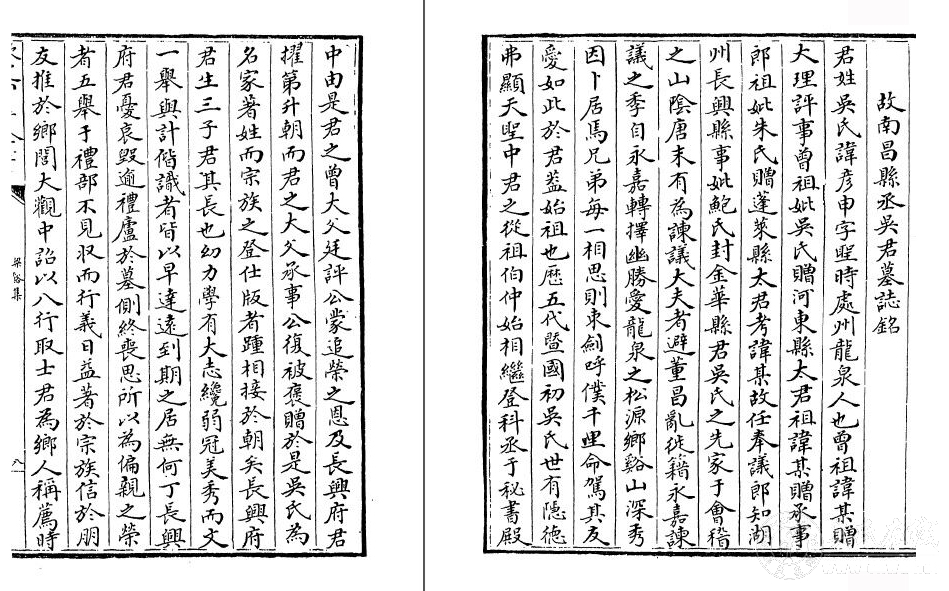 故南昌縣丞吳君墓誌銘
君姓吳氏諱彦申字聖時處州龍泉人也曾祖諱某贈
大理評事曾祖妣吳氏贈河東縣太君祖諱某贈承事
郎祖妣朱氏贈蓬萊縣太君考諱某故任奉議郎知湖
州長興縣事妣鮑氏封金華縣君吳氏之先家于會稽
之山陰唐末有為諫議大夫者避董昌亂徙籍永嘉諫
議之季自永嘉轉擇幽勝愛龍泉之松源鄉谿山深秀
因卜居焉兄弟每一相思則束劍呼僕千里命駕其友
愛如此於君葢始祖也歷五代曁國初吳氏世有隱德
弗顯天聖中君之從祖伯仲始相繼登科丞于秘書殿
中由是君之曾大父廷評公蒙追榮之恩及長興府君
擢第升朝而君之大父承事公復被褒贈於是吳氏為
名家著姓而宗族之登仕版者踵相接於朝矣長興府
君生三子君其長也幼力學有大志纔弱冠美秀而文
一舉與計偕識者皆以早達遠到期之居無何丁長興
府君憂哀毀逾禮廬於墓側終喪思所以為偏親之榮
者五舉于禮部不見収而行義日益著於宗族信於朋
友推於鄉閭大觀中詔以八行取士君為鄉人稱薦時
梁谿集